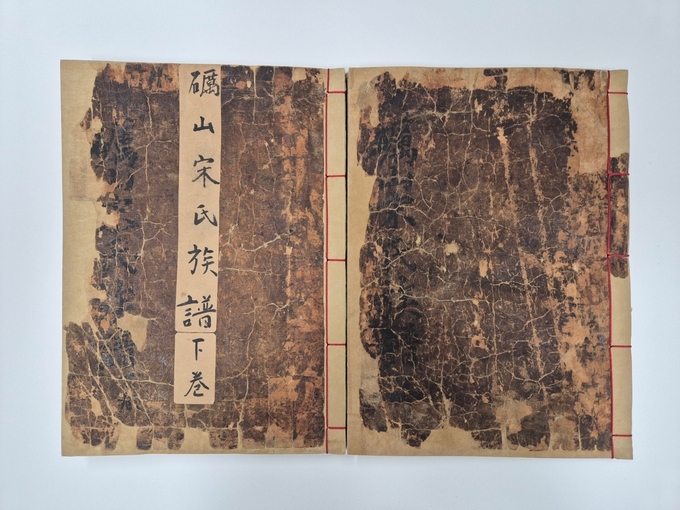 礪山宋氏族譜
下巻